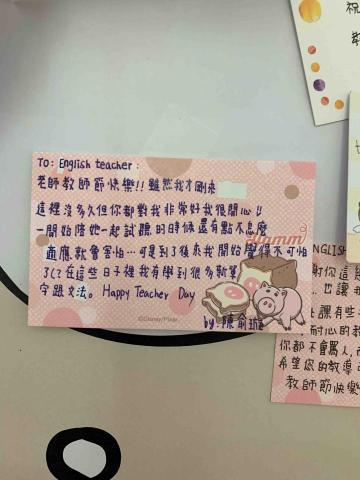 To: English teacher:
老師教師節快樂!! 雖然我才剛來
這裡沒多久但你都對我非常好我很開心!!
一開始陪她一起試聽的時候還有點不怎麼
適應就會害怕...可是到了後來我開始覺得不可怕
了(?)在這些日子裡我有學到很多新單
字跟文法。Happy Teacher Day
by: 陳俞
Hamm
©Disney/Pixar
祝
教
ENGLISH
謝你這
也讓
上課有些
耐心的教
你都不會罵人,
希望您的教導
教師節快樂